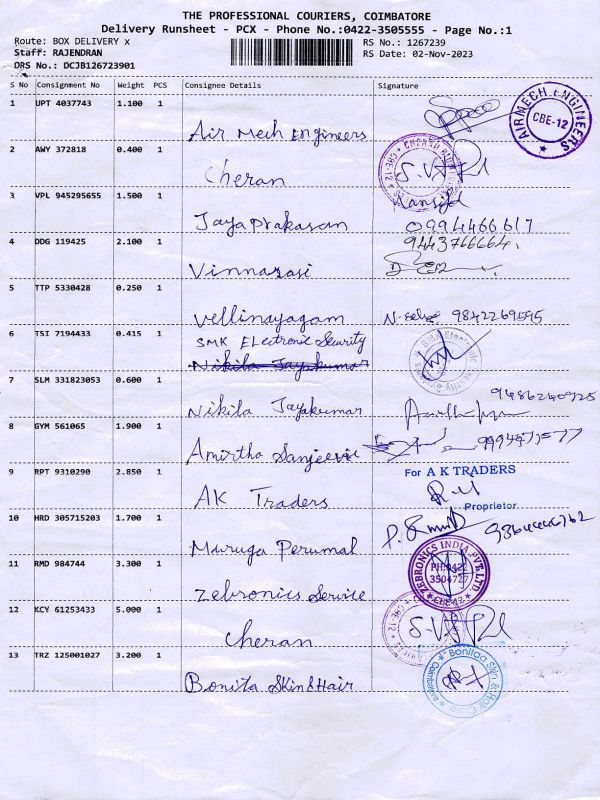 THE PROFESSIONAL COURIERS, COIMBATORE
Delivery Runsheet - PCX - Phone No.:0422-3505555 - Page No.:1
Route: BOX DELIVERY x RS No.: 1267239
Staff: RAJENDRAN RS Date: 02-Nov-2023
DRS No.: DCJB126723901
S No Consignment No Weight PCS Consignee Details Signature
1 UPT 4037743 1.100 1
Air Mech Engineers
AIRMECH ENGINEERS CBE-12
2 AWY 372818 0.400 1
Cheran
CBE-12
3 VPL 945295655 1.500 1
Jayaprakasan 0994466617
4 DDG 119425 2.100 1 9443766664.
Vinnarasi
5 TTP 5330428 0.250 1
Vellinayagam 9842269595
6 TSI 7194433 0.415 1 SMK Electronic Security
Nikila Jayakumar
7 SLM 331823053 0.600 1
Nikila Jayakumar 9486240925
8 GYM 561065 1.900 1
Amirtha Sanjeevi
9 RPT 9310290 2.850 1 For A K TRADERS
AK Traders
Proprietor
10 HRD 305715203 1.700 1
Muruga Perumal
11 RMD 984744 3.300 1
Zebronics Service
ZEBRONICS INDIA PVT LTD. PH:0422 3504727 CBE-12
12 KCY 61253433 5.000 1
Cheran
CBE-12
13 TRZ 125001027 3.200 1
Bonita Skin & Hair